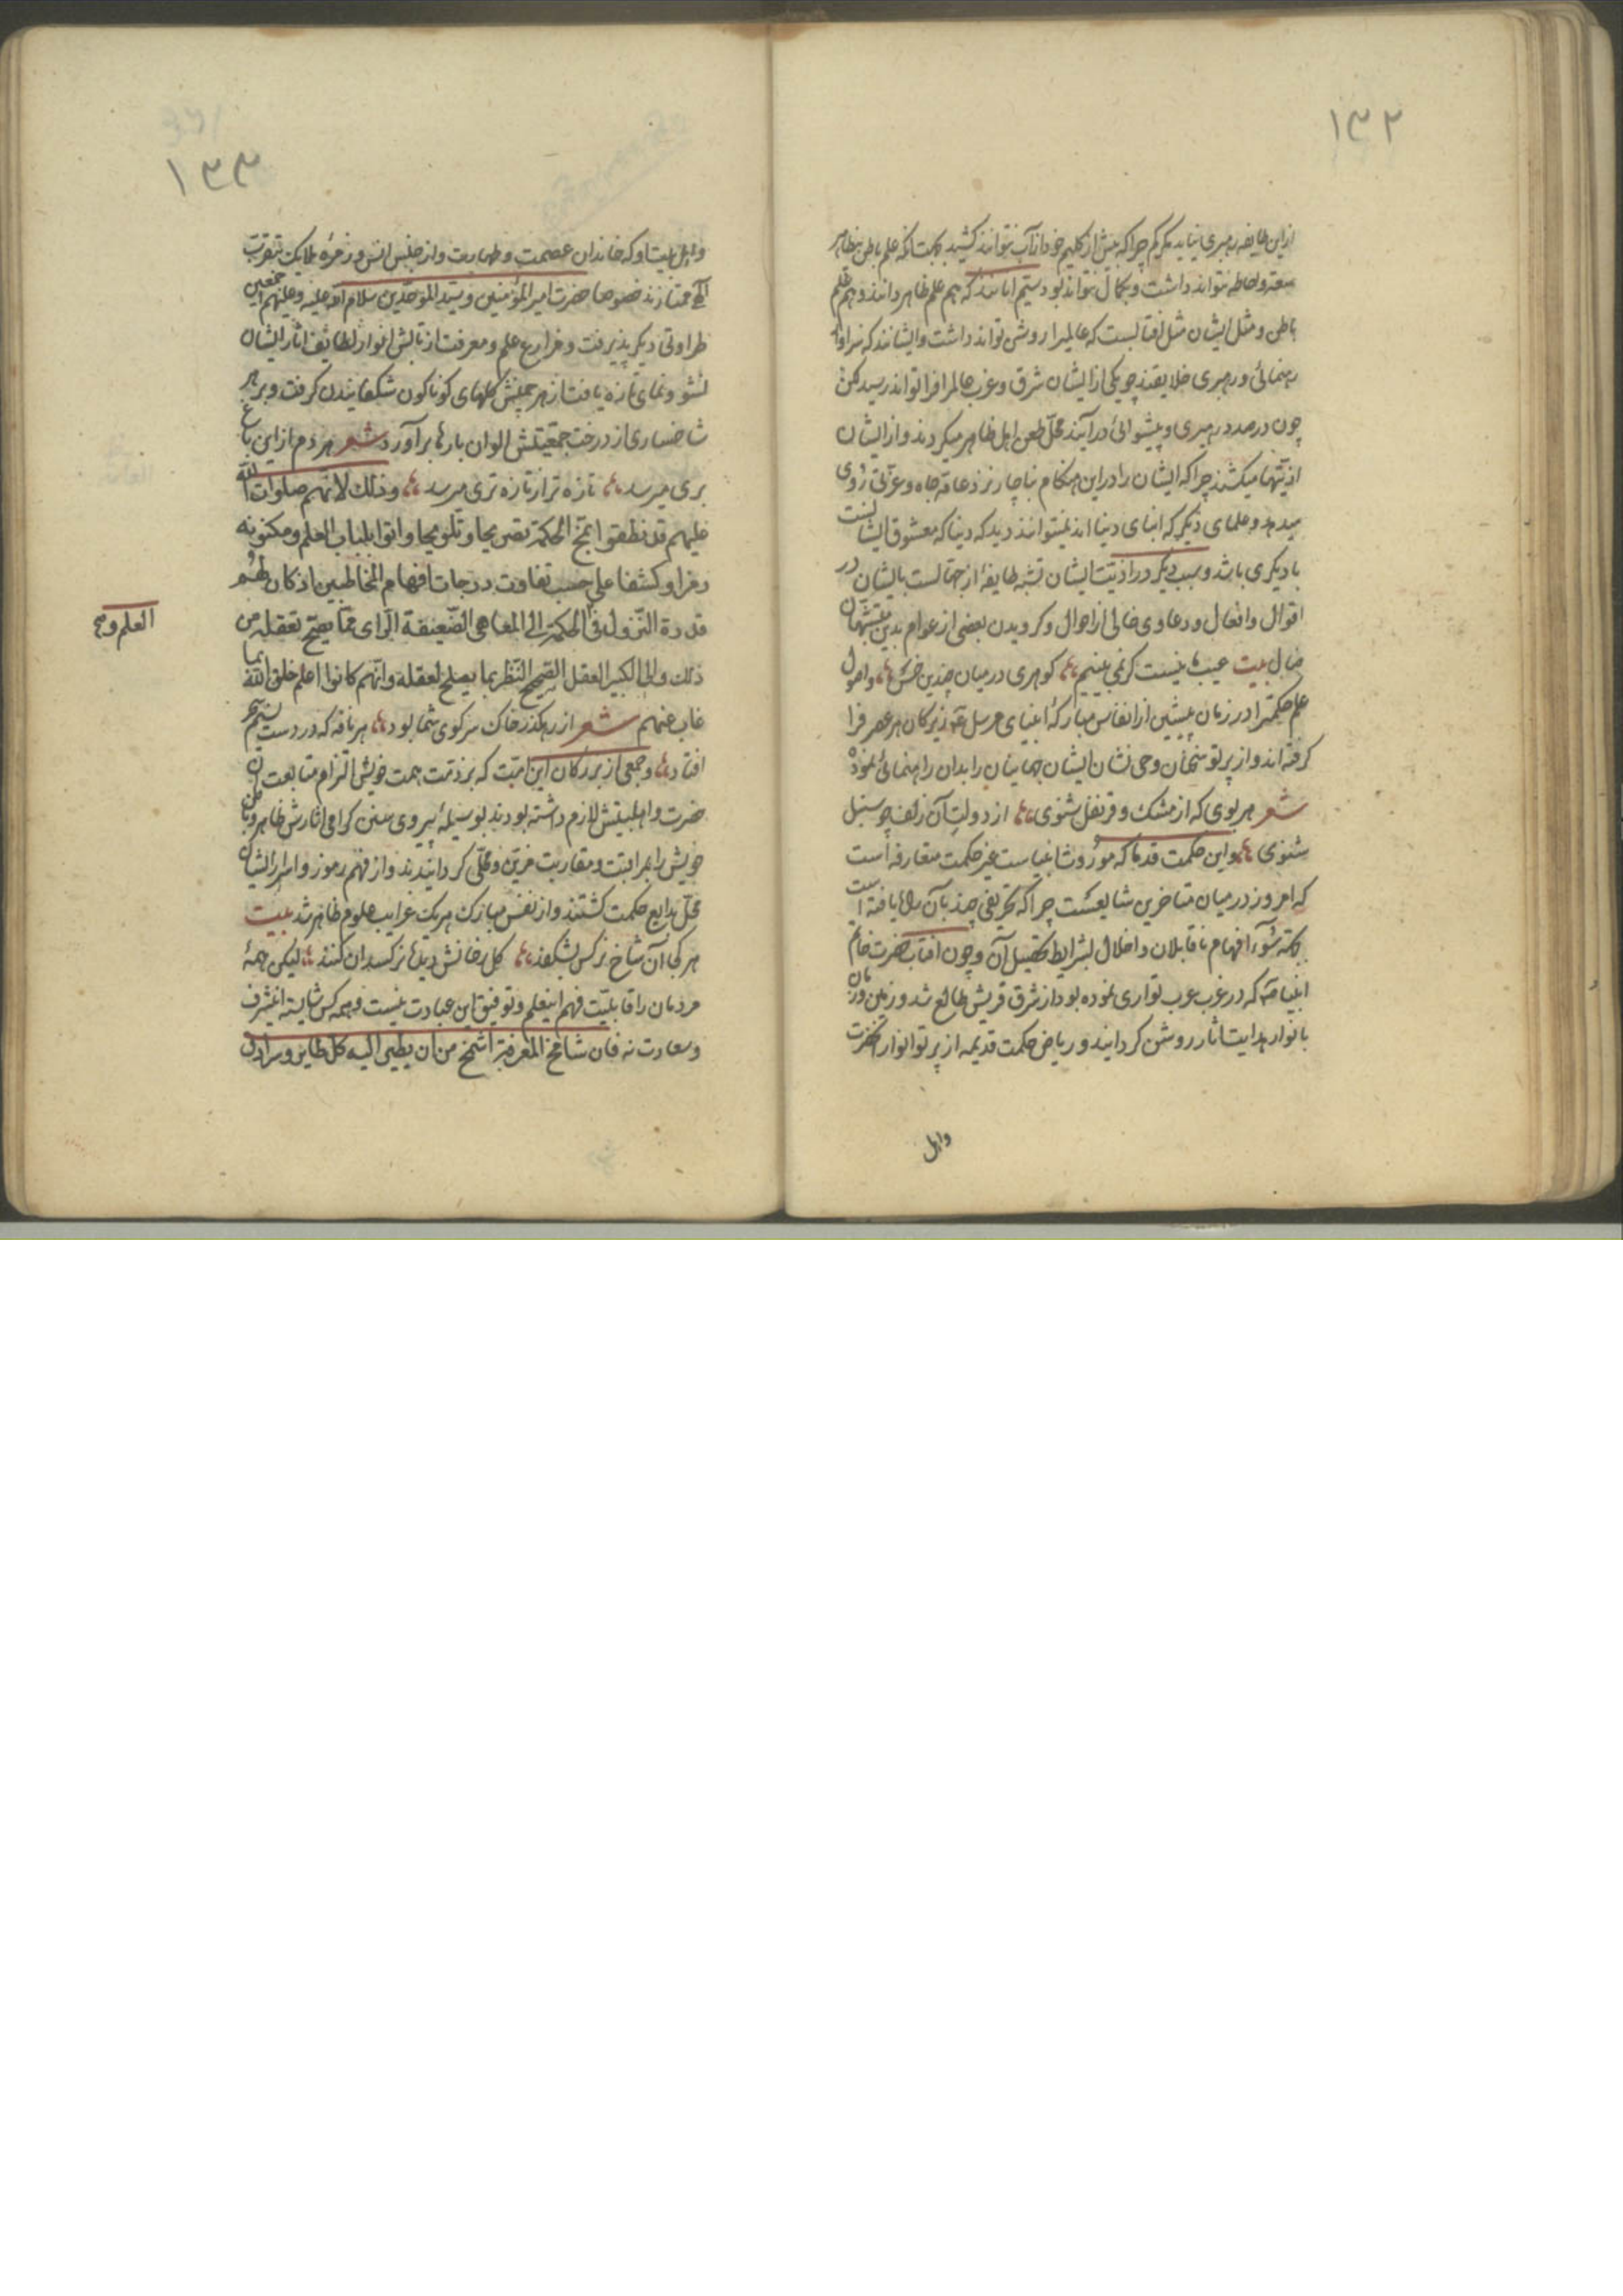 ۱۳۲
از این طایفه رهبری نیاید مگر کم چرا که بیش از گلیم خود از آب نتوانند کشید بجهت آنکه علم باطن بیظاهر
سعت و احاطه نتواند داشت و بکمال نتواند بود سیم آنانند که هم علم ظاهر دانند و هم علم
باطن و مثل ایشان مثل آفتابست که عالمیرا روشن تواند داشت و ایشانند که سزاوار
رهنمائی و رهبری خلایقند چو یکی از ایشان شرق و غرب عالم را فرا تواند رسید لکن
چون در صدد رهبری و پیشوائی در آیند محل طعن اهل ظاهر میگردند و از ایشان
اذیتها میکشند چرا که ایشان را در این هنگام ناچار نزد عامه جاه و عزتی روی
میدهد و علمای دیگر که ابنای دنیا اند نمیتوانند دید که دنیا که معشوق ایشانست
با دیگری باشد و سبب دیگر در اذیت ایشان تشبه طایفهٔ از جهالست بایشان در
اقوال و افعال و دعاوی خالی از احوال و گرویدن بعضی از عوام بدین متشبهان
ضال بیت عیبها نیست گر نمی بینیم گوهری در میان چندین خس و اصول
علم حکمترا در زمان پیشین از انفاس مبارکهٔ انبیای مرسل ع نیز بزرگان هر عصر فرا
گرفته اند و از پرتو سخنان وحی نشان ایشان جهانیان را بدان راهنمائی نموده
شعر هر بوی که از مشک و قرنفل شنوی از دولت آن زلف چو سنبل
شنوی و این حکمت قدما که موروث انبیاست غیر حکمت متعارفه است
که امروز در میان متاخرین شایعست چرا که تحریفی چند بآن راه یافته است
بجهة سوء افهام ناقابلان و اخلال بشرایط تحصیل آن و چون آفتاب حضرت خاتم
انبیا ص که در غرب عرب تواری نموده بود از شرق قریش طالع شد و زمین و زمان
بانوار هدایت آثار روشن گردانید و ریاض حکمت قدیمه از پرتو انوار آنحضرت
واهل
۱۳۳
واهل بیت او که خاندان عصمت و طهارت و از جنس انس و زمرهٔ ملایک بتقرب
آلهی ممتازند خصوصا حضرت امیر المؤمنین و سید الموحدین سلام الله علیه و علیهم اجمعین
طراوتی دیگر پذیرفت و مزارع علم و معرفت از تابش انوار لطایف آثار ایشان
نشو و نمای تازه یافت از هر چمنش گلهای گوناگون شکفانیدن گرفت و بر هر
شاخساری از درخت جمعیتش الوان بارها برآورد شعر هر دم از این باغ
بری میرسد تازه تر از تازه تری میرسد و ذلك لانهم صلوات الله
علیهم قد نطقوا بمخ الحکمة تصریحا و تلویحا و اتوا بلباب العلم و مکنونه
رمزا و کشفا علی حسب تفاوت درجات افهام المخاطبین اذ کان لهم
قدرة النزول فی الحکمة الی المعاهی الضعیفة الرای مما یصح تعقله من
ذلك و الی الکبیر العقل الصحیح النظر بما یصلح لعقله و انهم کانوا اعلم خلق الله بما
غاب عنهم شعر از رهگذر خاک سر کوی شما بود هر نافه که در دست نسیم سحر
افتاد و جمعی از بزرگان این امت که بر ذمت همت خویش التزام متابعت آن
حضرت و اهلبیتش لازم داشته بودند بوسیلهٔ پیروی سنن گرامی آثارش ظاهر و باطن
خویش را بمراتبت و مقاربت مزین و محلی گردانیدند و از فهم رموز و اسرار ایشان
محل بدایع حکمت گشتند و از نفس مبارک هریک غرایب علوم ظاهر شد بیت
هر کجا آن شاخ نرگس بشکفد گل رخانش دیدها نرگسدان کنند لیکن همهٔ
مردمان را قابلیت فهم اینعلم و توفیق این عبادت نیست و همه کس شایسته اینشرف
و سعادت نه فان شامخ المعرفة اشمخ من ان یطیر الیه کل طایر و سرادق
العلم و مح